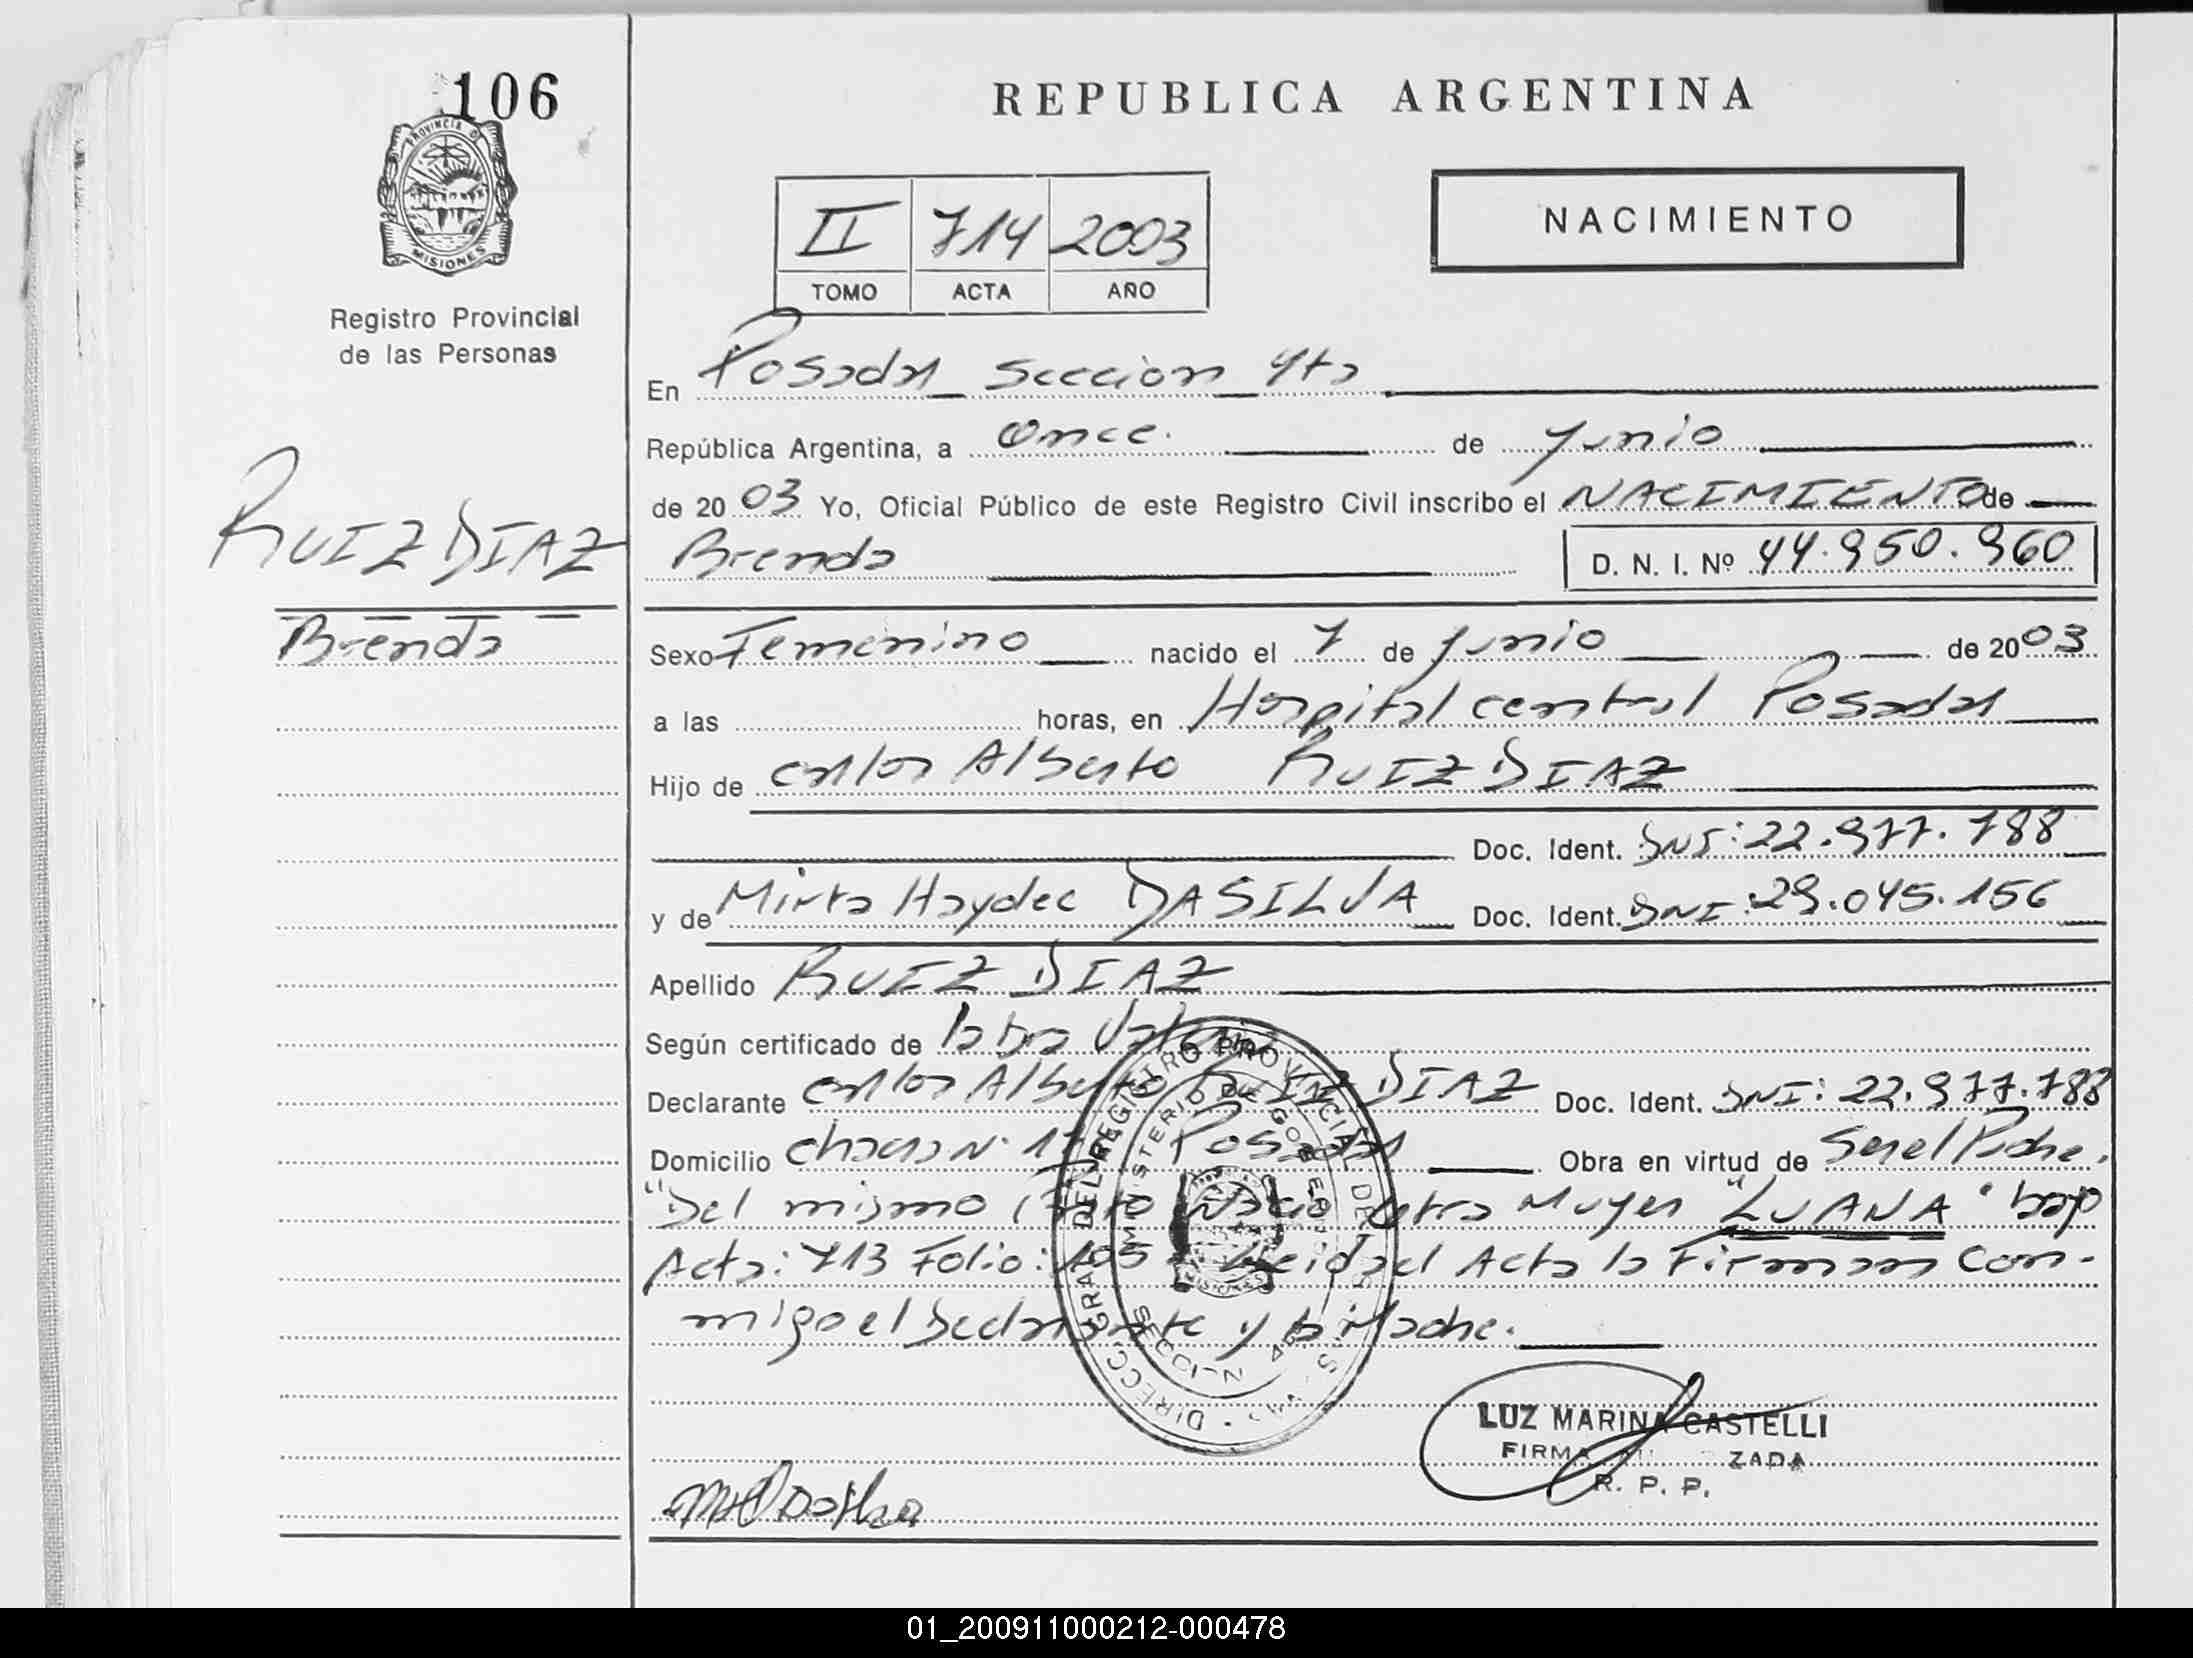 106
PROVINCIA D
MISIONES
Registro Provincial
de las Personas
RUIZ DIAZ
Brenda
REPUBLICA ARGENTINA
II 714 2003
TOMO ACTA AÑO
NACIMIENTO
En Posadas seccion 4ta
República Argentina, a once. de Junio
de 2003 Yo, Oficial Público de este Registro Civil inscribo el NACIMIENTO de
Brenda D. N. I. Nº 44.950.960
Sexo Femenino nacido el 7 de Junio de 2003
a las horas, en Hospital central Posadas
Hijo de carlos Alberto RUIZ DIAZ
Doc. Ident. DNI: 22.977.788
y de Mirta Haydee DASILVA Doc. Ident. DNI: 29.045.156
Apellido RUIZ DIAZ
Según certificado de la Dra
Declarante carlos Alberto RUIZ DIAZ Doc. Ident. DNI: 22.977.788
Domicilio chacra N· Posadas Obra en virtud de Ser el Padre.
"Del mismo Parto Nacio otra Mujer "LUANA" bajo
Acta: 713 Folio: 105 Leida el Acta la Firman Con-
migo el Declarante y la Madre.
DIRECC. GRAL. DEL REGISTRO PROVINCIAL DE
MINISTERIO DE GOBIERNO
SECCION 4a
LUZ MARINA CASTELLI
FIRMA ZADA
R. P. P.
01_200911000212-000478